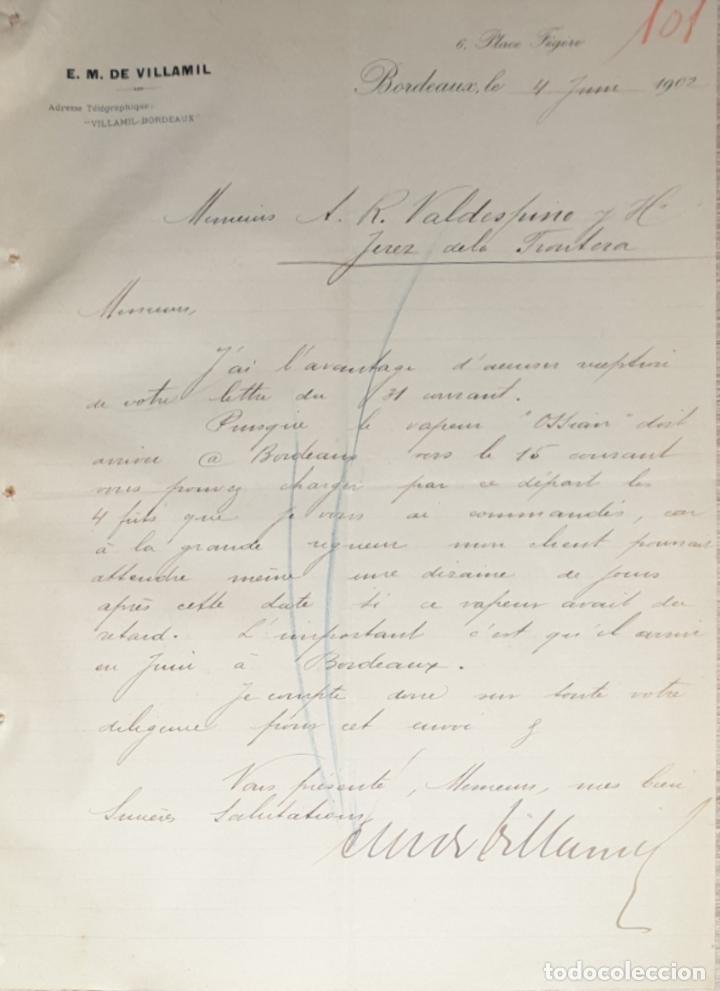 101
6, Place Fégère
E. M. DE VILLAMIL
Adresse Télégraphique:
"VILLAMIL-BORDEAUX"
Bordeaux, le 4 Juin 1902
Messieurs A. R. Valdespino y Hº
Jerez de la Frontera
Messieurs,
J'ai l'avantage d'accuser réception
de votre lettre du 31 courant.
Puisque le vapeur "Ossian" doit
arriver @ Bordeaux vers le 15 courant
vous pouvez charger par ce départ les
4 fûts que je vous ai commandés, car
à la grande rigueur mon client pourrait
attendre même une dizaine de jours
après cette date si ce vapeur avait du
retard. L'important c'est qu'il arrive
en Juin à Bordeaux.
Je compte donc sur toute votre
diligence pour cet envoi &
Vous présente, Messieurs, mes bien
Sincères Salutations
de Villamil
todocoleccion